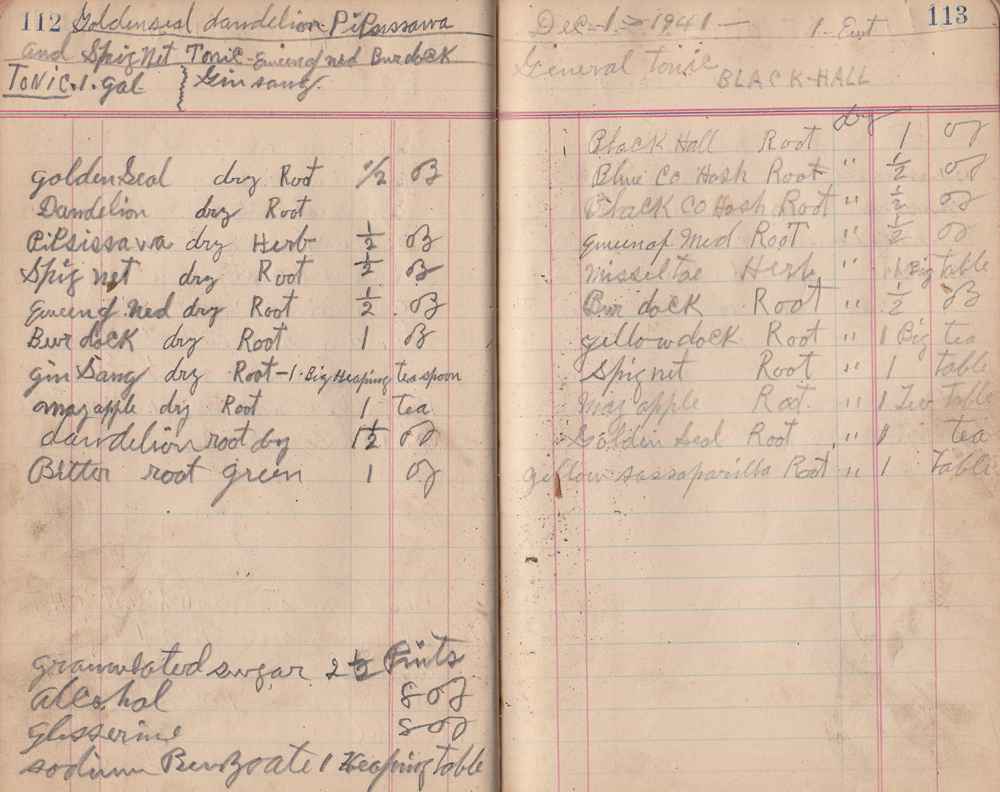 112 Goldenseal dandelion Pipsissawa
and Spignet Tonic - queenof med Burdock
TONIC. 1. gal } Ginsang.
golden Seal dry Root 1/2 oz
Dandelion dry Root
Pipsissawa dry Herb 1/2 oz
Spignet dry Root 1/2 oz
queenof med dry Root 1/2 oz
Burdock dry Root 1 oz
gin Sang dry Root - 1. Big Heaping teaspoon
may apple dry Root 1 tea
dandelion root dry 1 1/2 oz
Bitter root green 1 oz
granulated sugar 2 1/2 Pints
alcohal 8 oz
glisserine 8 oz
sodium Benzoate 1 Heaping table
Dec-1 - 1941 - 113
General Tonic
BLACK-HALL
dry
Black Hall Root 1 oz
Blue Co Hosh Root " 1/2 oz
Black Co Hosh Root " 1/2 oz
queenof Med Root " 1/2 oz
Misseltoe Herb " 1 Big table
Burdock Root " 1/2 oz
yellowdock Root " 1 Big tea
Spignet Root " 1 table
May apple Root " 1 Table
Goldin Seal Root " 1 tea
yellow sassaparilla Root " 1 Table